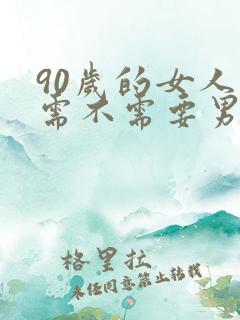 90歲的女人
需不需要男
格里拉
未经同意禁止转载